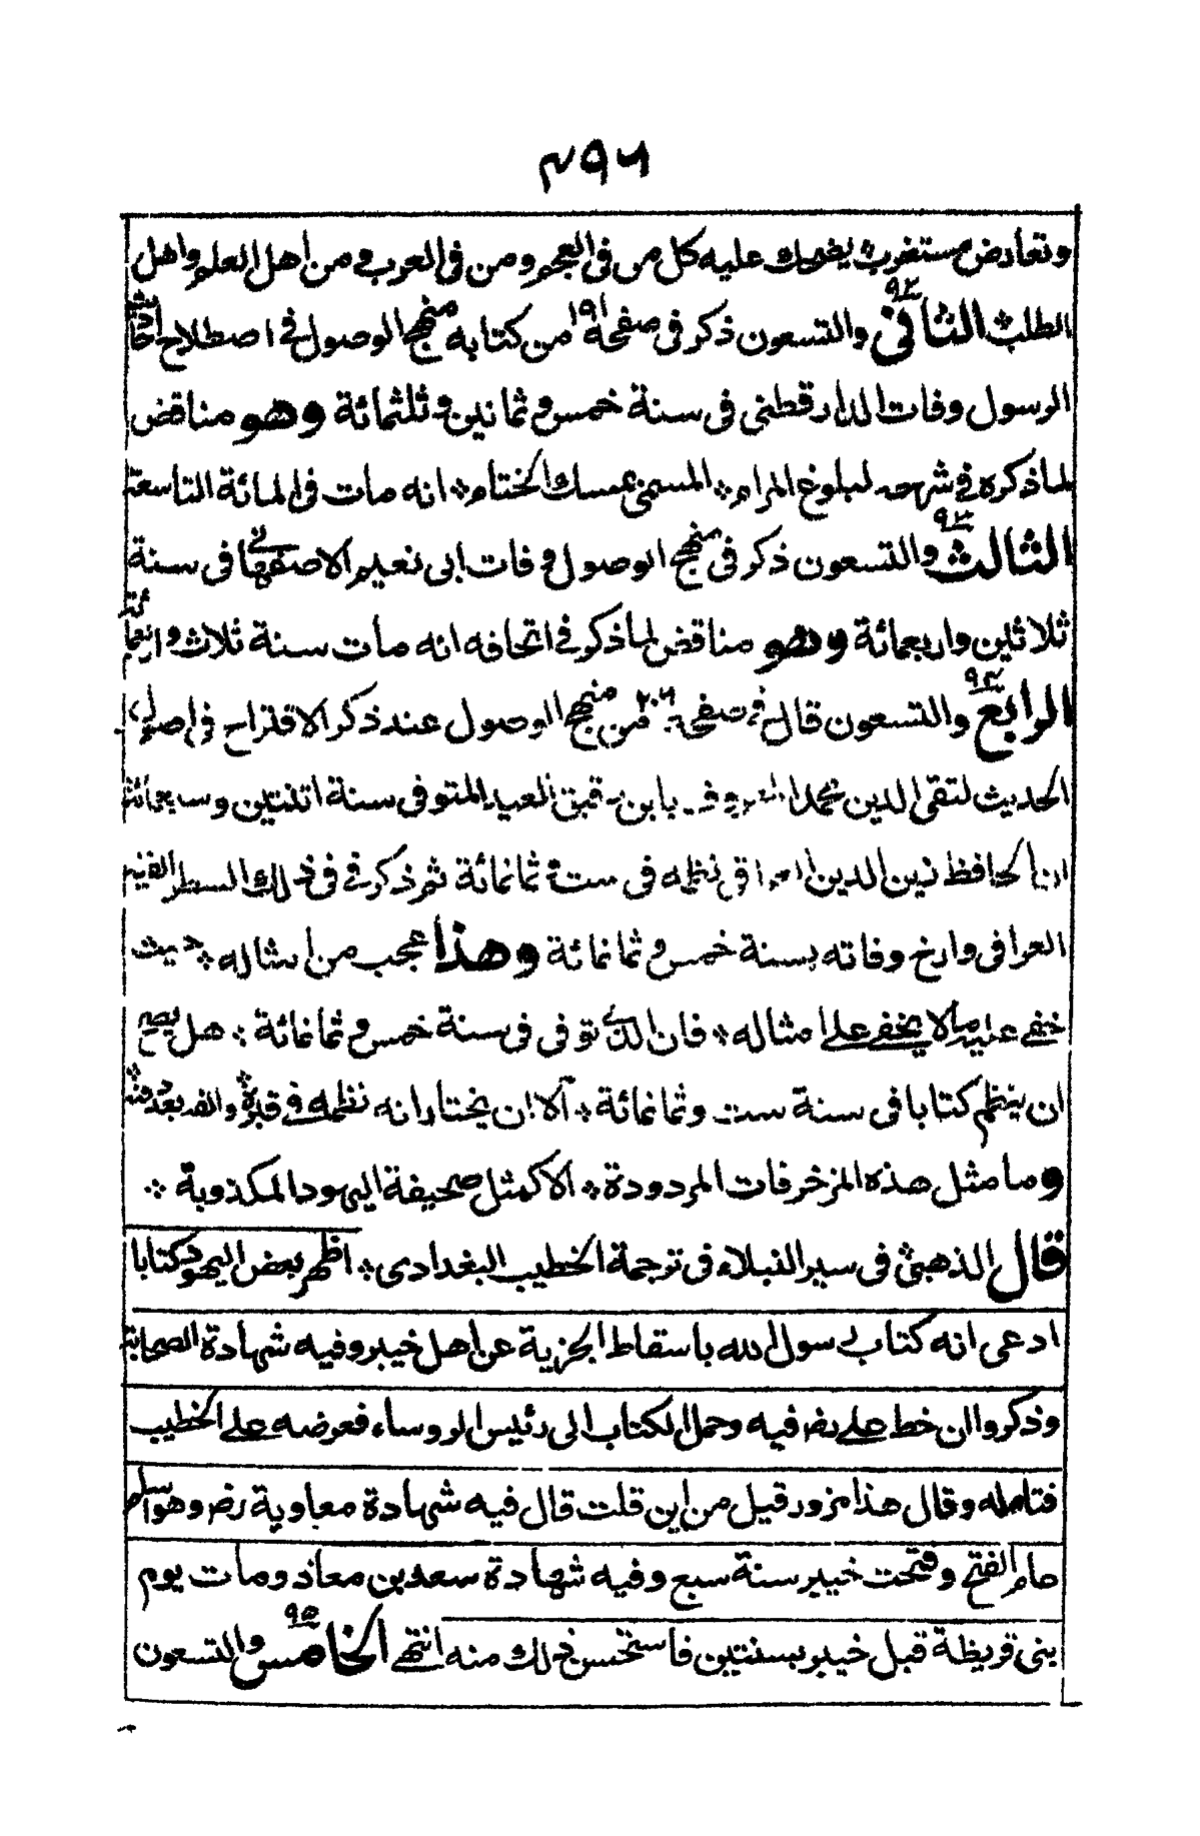 ٢٩٦
وتعارض مستغرب يضحك عليه كل من فى العجم ومن فى العرب ومن اهل العلم واهل
الطلب الثانى ٩٢ والتسعون ذكر فى صفحة ١٩١ من كتابه منهج الوصول فى اصطلاح احاديث
الرسول وفات الدارقطنى فى سنة خمس وثمانين وثلثمائة وهو مناقض
لما ذكره فى شرحه لبلوغ المرام ؞ المسمى بمسك الختام ؞ انه مات فى المائة التاسعة
الثالث ٩٣ والتسعون ذكر فى منهج الوصول وفات ابى نعيم الاصفهانى فى سنة
ثلاثين واربعمائة وهو مناقض لما ذكر فى اتحافه انه مات سنة ثلاث واربعمائة
الرابع ٩٤ والتسعون قال فى صفحة ٢٠٦ من منهج الوصول عند ذكر الاقتراح فى اصول
الحديث لتقى الدين محمد المعروف بابن دقيق العيد المتوفى سنة اثنتين وسبعمائة
ان الحافظ زين الدين العراقى نظمه فى ستة ثمانمائة ثم ذكر فى ذلك السطر الفية
العراقى وارخ وفاته بسنة خمس وثمانمائة وهذا عجب من امثاله ؞ حيث
خفى عليه ما لا يخفى على امثاله ؞ فان الذى توفى فى سنة خمس وثمانمائة ؞ هل يصح
ان ينظم كتابا فى سنة ست وثمانمائة ؞ الا ان يختار انه نظمه فى قبره والفه بعد دفنه
وما مثل هذه المزخرفات المردودة ؞ الا كمثل صحيفة اليهود المكذوبة ؞
قال الذهبى فى سير النبلاء فى ترجمة الخطيب البغدادى ؞ اظهر بعض اليهود كتابا
ادعى انه كتاب رسول الله باسقاط الجزية عن اهل خيبر وفيه شهادة الصحابة
وذكروا ان خط على رضـ فيه وحمل الكتاب الى رئيس الروساء فعرضه على الخطيب
فتامله وقال هذا مزور قيل من اين قلت قال فيه شهادة معاوية رضـ وهو اسلم
عام الفتح وفتحت خيبر سنة سبع وفيه شهادة سعد بن معاذ ومات يوم
بنى قريظة قبل خيبر بسنتين فاستحسن ذلك منه انتهى الخامس ٩٥ والتسعون